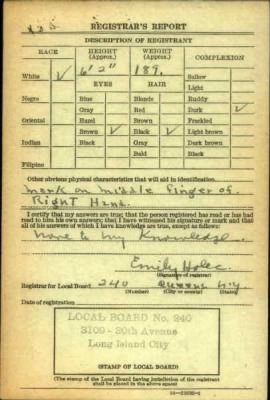 REGISTRAR'S REPORT
DESCRIPTION OF REGISTRANT
RACE HEIGHT (Approx.) WEIGHT (Approx.) COMPLEXION
White ✓ 6' 2" 189. Sallow
EYES HAIR Light
Negro Blue Blonde Ruddy
Gray Red Dark ✓
Oriental Hazel Brown Freckled
Brown ✓ Black ✓ Light brown
Indian Black Gray Dark brown
Bald Black
Filipino
Other obvious physical characteristics that will aid in identification
mark on middle finger of
Right Hand.
I certify that my answers are true; that the person registered has read or has had
read to him his own answers; that I have witnessed his signature or mark and that
all of his answers of which I have knowledge are true, except as follows:
none to my knowledge.
Emily Holec
Registrar for Local Board 240 Queens N.Y.
(Number) (City or county) (State)
Date of registration
LOCAL BOARD No. 240
3109 - 30th Avenue
Long Island City
(STAMP OF LOCAL BOARD)
(The stamp of the Local Board having jurisdiction of the registrant
shall be placed in the above space)